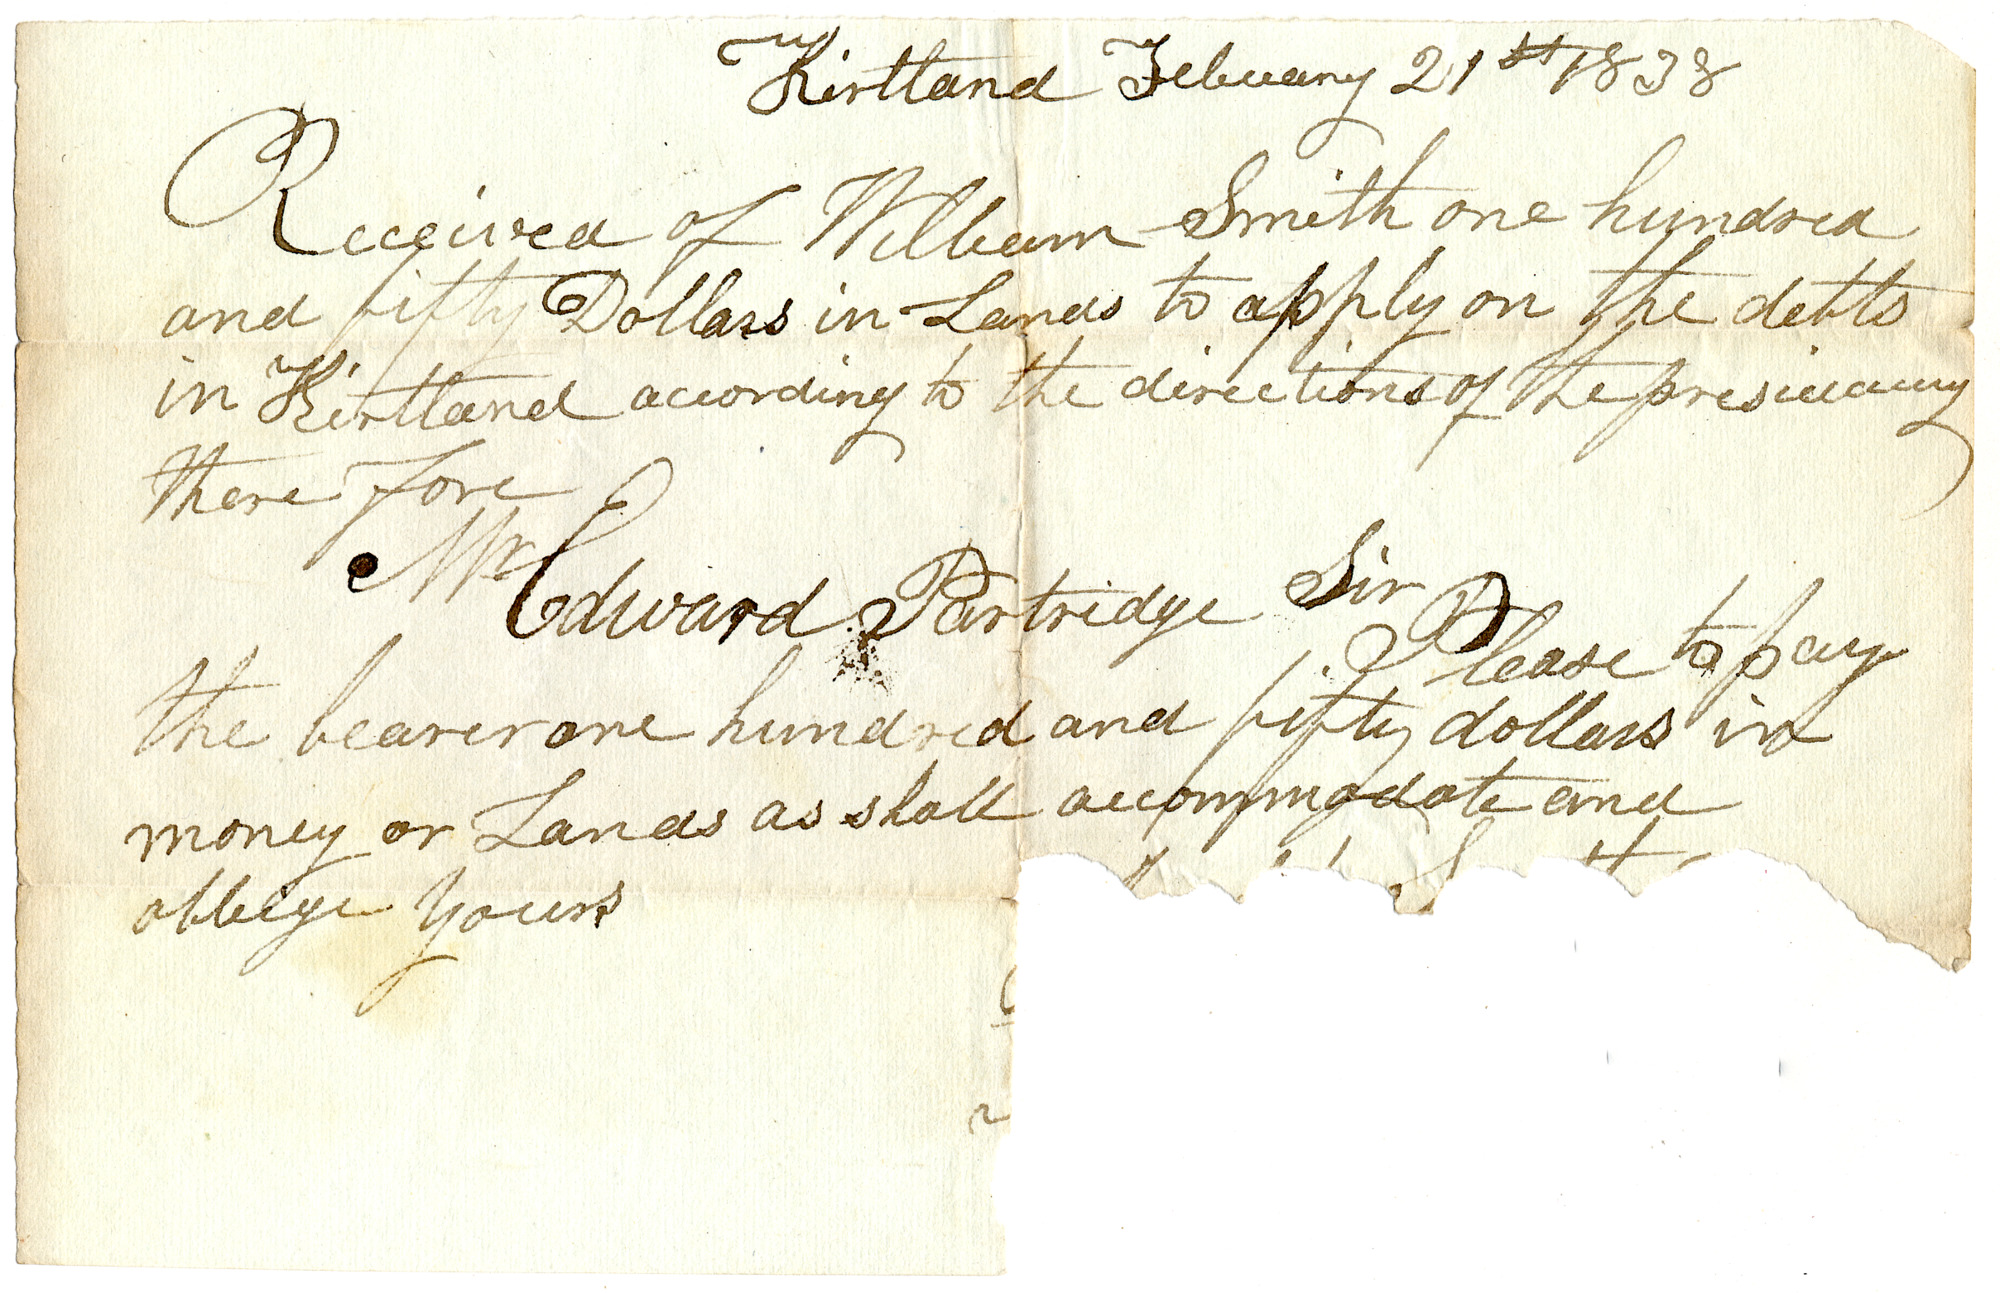 Kirtland February 21st 1838
Received of William Smith one hundred
and fifty Dollars in Lands to apply on the debts
in Kirtland according to the directions of the presidency
there fore
Mr Edward Partridge Sir
Please to pay
the bearer one hundred and fifty dollars in
money or Lands as shall accommodate and
obleige yours